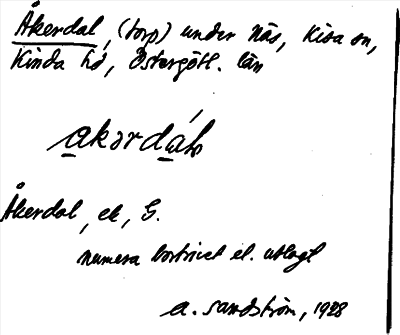 Åkerdal, (torp) under Näs, Kisa sn,
Kinda hd, Östergötl. län
akərdál
Åkerdal, ek, G.
numera bortrivet el. utlagt
A. Sandström, 1928